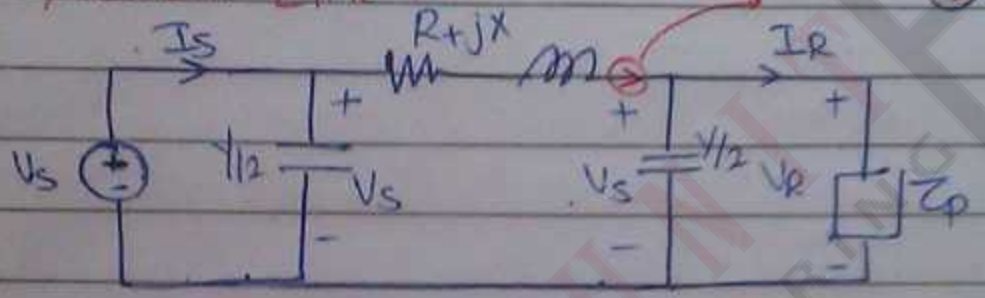 Is R+jX IR
+ + +
Vs + - Y/2 Vs Vs Y/2 VR Zp
- - -